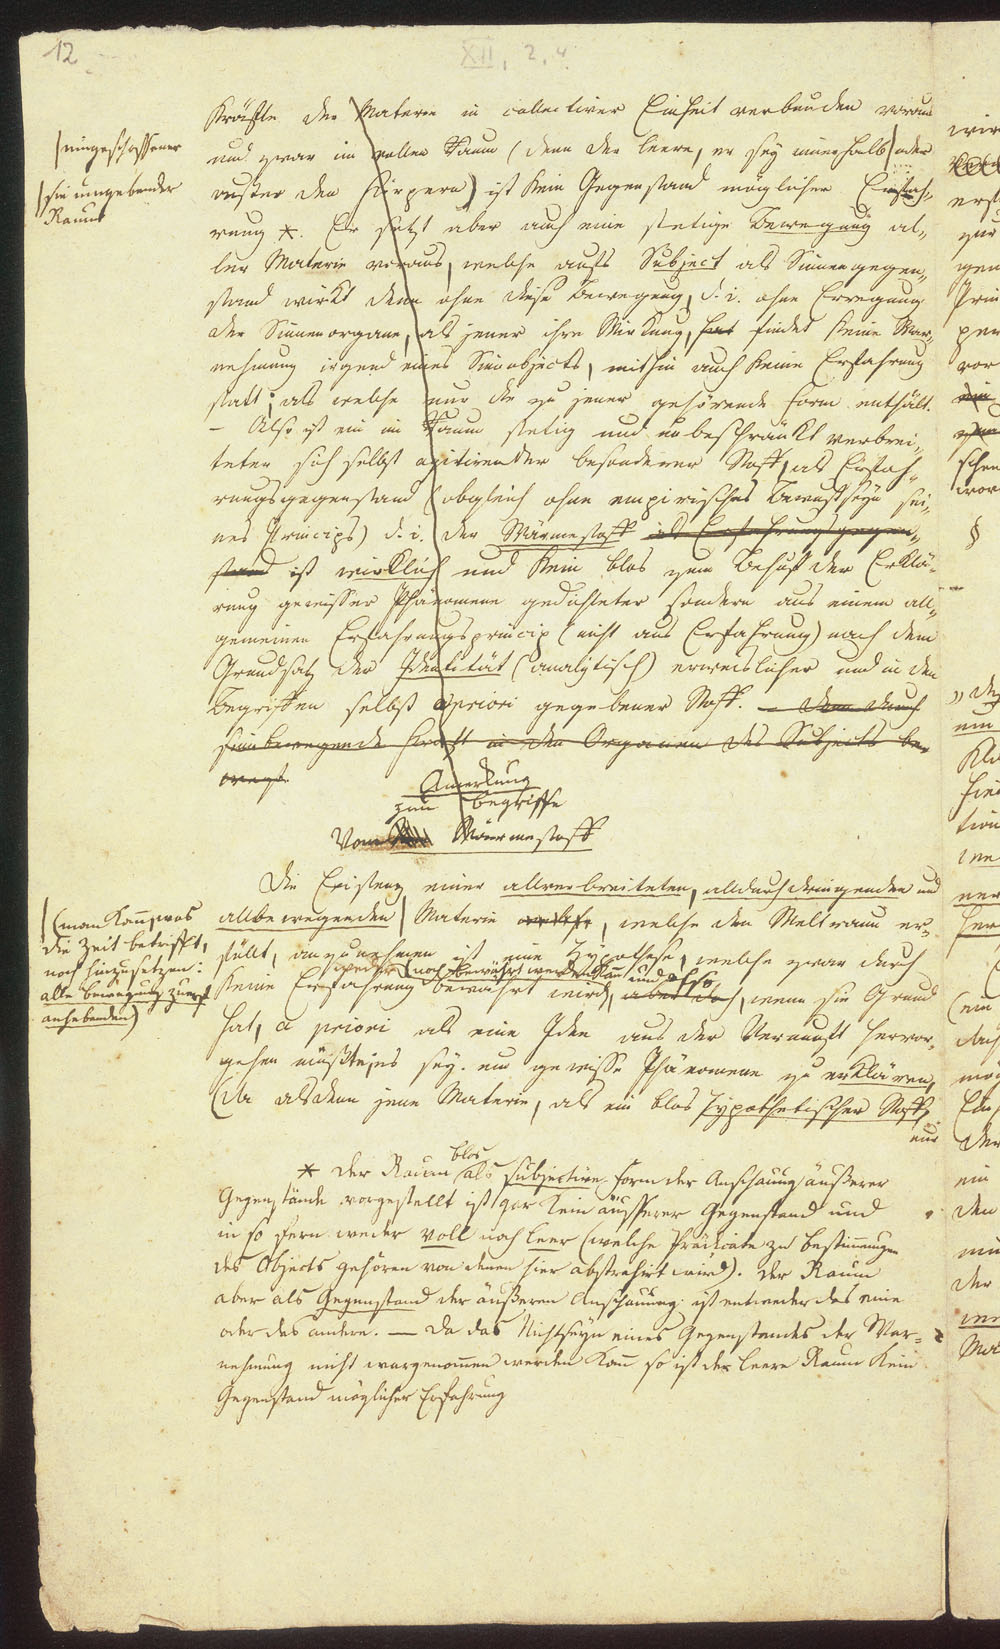 12
XII, 2, 4
Kräfte der Materie in collectiver Einheit verbunden voraus
und zwar im vollen Raum (denn der leere, er sey innerhalb | oder
außer den Körpern) ist kein Gegenstand möglicher Erfah-
rung *. Er setzt aber auch eine stetige Bewegung al-
ler Materie voraus, welche aufs Subject als Sinnengegen-
stand wirkt denn ohne diese Bewegung, d. i. ohne Erregung
der Sinnenorgane, als jener ihre Wirkung, hat findet keine War-
nehmung irgend eines Sinnobjects, mithin auch keine Erfahrung
statt; als welche nur die zu jener gehörende Form enthält.
– Also ist ein im Raum stetig und unbeschränkt verbrei-
teter sich selbst agitirender besonderer Stoff, als Erfah-
rungsgegenstand (obgleich ohne empirisches Bewustseyn sei-
nes Princips) d. i. der Wärmestoff als Erfahrungsgegen-
stand ist wirklich und kein blos zum Behuf der Erklä-
rung gewisser Phänomene gedichteter sondern aus einem all-
gemeinen Erfahrungsprincip (nicht aus Erfahrung) nach dem
Grundsatz der Identität (analytisch) erweislicher und in den
Begriffen selbst a priori gegebener Stoff. – Denn durch
seine bewegende Kraft in den Organen des Subjects be-
wegt.
| eingeschlossener
| sie umgebender
Raum
Anmerkung
zum Begriffe
Vom Wärmestoff
Die Existenz einer allverbreiteten, alldurchdringenden und
allbewegenden | Materie welche, welche den Weltraum er-
füllt, anzunehmen ist eine Hypothese, welche zwar durch
weder noch bewährt werden kann und also
keine Erfahrung bewährt wird, aber doch, wenn sie Grund
hat, a priori als eine Idee aus der Vernunft hervor-
gehen müßte, es sey. um gewisse Phänomene zu erklären,
(da alsdenn jene Materie, als ein blos hypothetischer Stoff,
nur
| (man kan, was
die Zeit betrifft,
noch hinzusetzen:
alle Bewegung zuerst
anhebenden)
* Der Raum blos als subjective Form der Anschauung äußerer
Gegenstände vorgestellt ist gar kein äußerer Gegenstand und
in so fern weder voll noch leer (welche Prädicate zu Bestimmungen
des Objects gehören von denen hier abstrahirt wird). Der Raum
aber als Gegenstand der äußeren Anschauung ist entweder das eine
oder das andere. — Da das Nichtseyn eines Gegenstandes der War-
nehmung nicht wargenommen werden kann so ist der leere Raum kein
Gegenstand möglicher Erfahrung